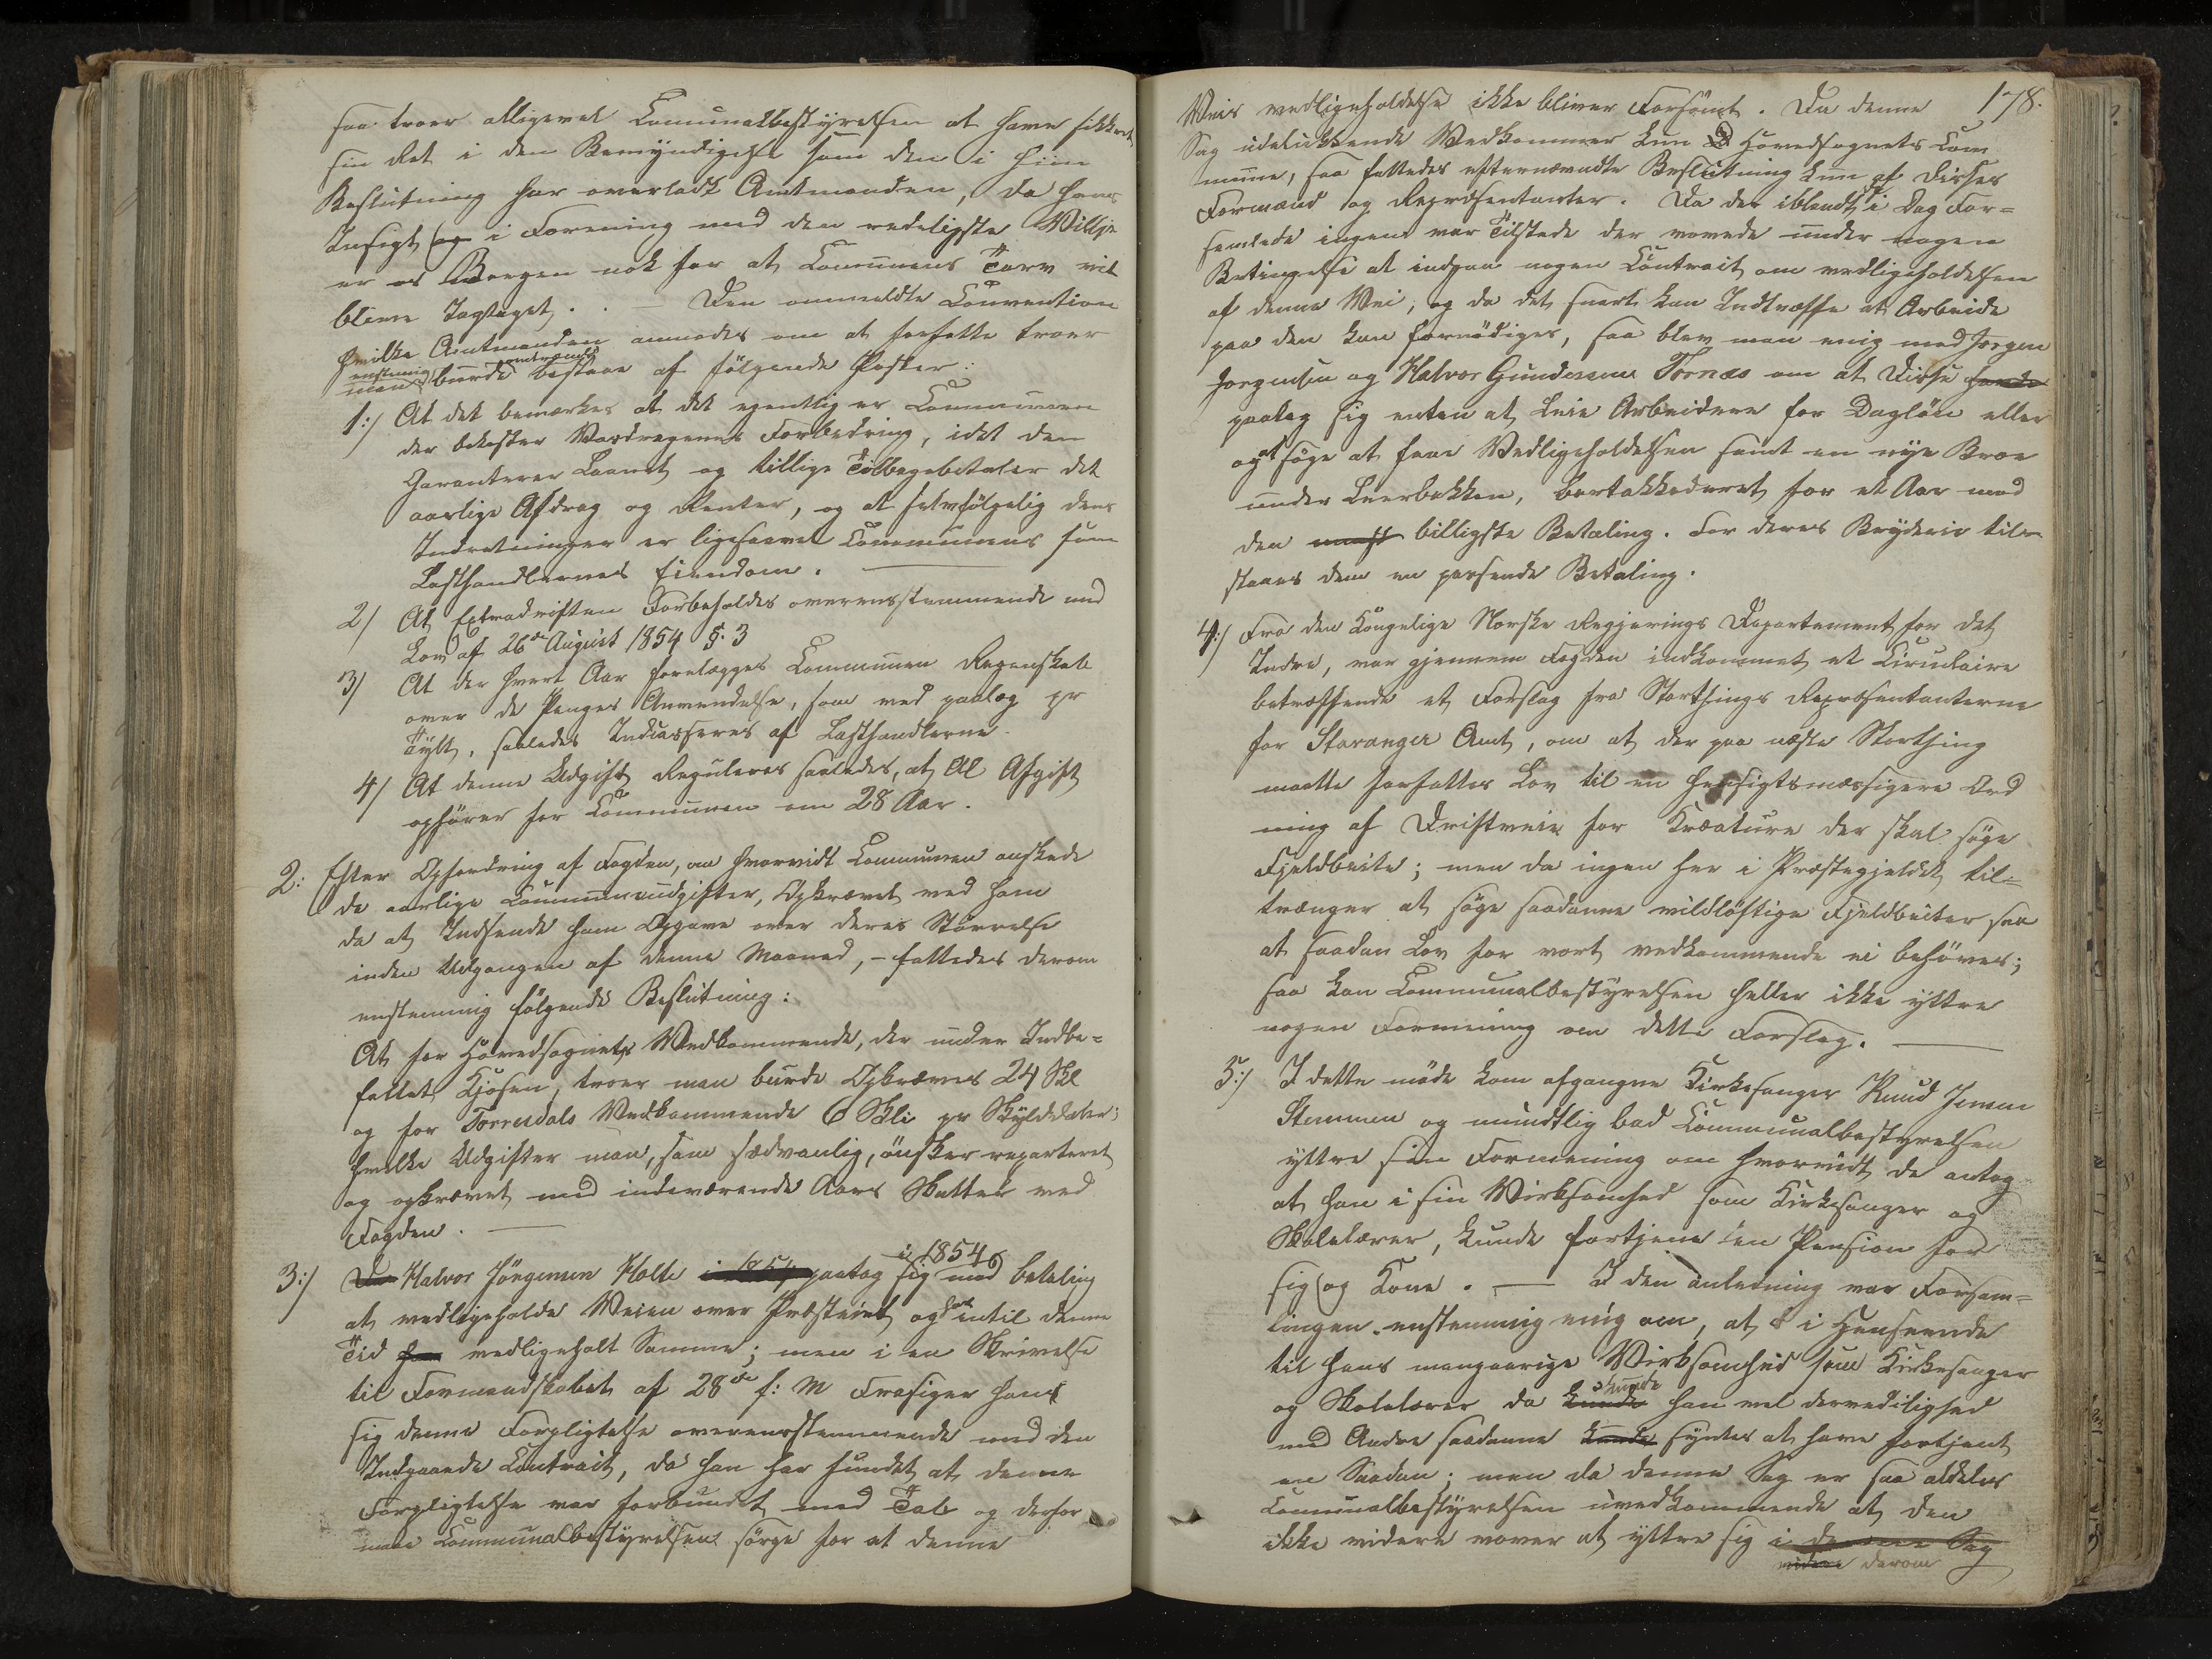 saa troer alligevel Comunalbestyrelsen at have sikkret
sin Ret i den Bemyndigelse som den i hiin
Beslutning har overladt Amtmanden, da hans
Insigt og i Forening med den redeligste Villje
er os Borgen nok for at Comunens Tarv vil
blive Iagttaget. - Den anmeldte Convention
hvilke Amtmanden anmodes om at forfatte troer
man enstemmig burde omtrendt bestaae af følgende Poster:
1:/ At det bemærkes at det egentlig er Communen
der bekoster Vasdragenes Forbedring, idet den
Garanterer Laanet og tillige Tilbagebetaler det
aarlige Afdrag og Renter, og at selvfølgelig dens
Indretninger er ligesaavel Communens som
Lasthandlernes Eiendom.
2/ At Extradriften Forbeholdes overensstemmende med
Lov af 26de August 1854 §. 3
3/ At der hvert Aar forelægges Communen Regenskab
over de Penges Anvendelse, som ved paalæg pr
Tylt, saaledes Indcasseres af Lasthandlerne.
4/ At denne Udgift Reguleres saaledes, at Al Afgift
ophører for Communen om 28 Aar.
2: Efter Opfordring af Fogden, om hvorvidt Communen ønskede
de aarlige Communeudgifter, Opkrævet ved ham
da at Indsende ham Opgave over deres Størrelse
inden Udgangen af denne Maaned, - fattedes derom
enstemmig følgende Beslutning:
At for Hovedsognets Vedkommende, der under Indbe=
fattet Kjosen, troer man burde Opkræves 24 Skl
og for Torresdals Vedkommende 6 Skl pr Skylddaler;
hvilke Udgifter man, som sædvanlig, ønsker reparteret
og opkrævet med indeværende Aars Skatter ved
Fogden.
3:/ Da Halvor Jørgensen Holte i 1854 paatog sig i 1854 mod betaling
at vedligeholde Veien over Præsteiet og har intil denne
Tid har vedligeholt Samme; men i en Skrivelse
til Formandskabet af 28de f: M Frasiger han
sig denne Forpligtelse overensstemmende med den
Indgaaede Contrait, da han har fundet at denne
Forpligtelse var forbundet med Tab og derfor
maae Communalbestyrelsen sørge for at denne
178.
Veis vedligeholdelse ikke bliver Forsømt. Da denne
Sag udelukkende Vedkommer kun Hovedsognets Com
mune, saa fattedes efternævnte Beslutning kun af disses
Formænd og Repræsentanter. Da der iblandt de i Dag For=
samlede ingen var Tilstede der vovede under nogen
Betingelse at indgaa nogen Contrait om vedligeholdelsen
af denne Vei; og da det snart kan Indtræffe at Arbeide
paa den kan fornødiges, saa blev man enig med Jørgen
Jørgensen og Halvor Gundersen Tornæs om at Disse
paatog sig enten at Leie Arbeidere for Dagløn eller
og at søge at faae Vedligeholdelsen samt en nye Broe
under Leerbakken, bortakkederet for et Aar mod
den billigste Betaling. For deres Bryderie til=
staaes dem en passende Betaling.
4:/ Fra den Kongelige Norske Regjerings Departement for det
Indre, var gjennem Fogden indkommet et Circulaire
betræffende et Forslag fra Storthings Repræsentanterne
for Stavanger Amt, om at der paa næste Storthing
maatte forfattes Lov til en hensigtsmæssigere Ord
ning af Driftveie for Kreature der skal søge
Fjeldbeite; men da ingen her i Præstegjeldet til=
trænger at søge saadanne vidløftige Fjeldbeiter saa
at saadan Lov for vort vedkommende ei behøves;
saa kan Communalbestyrelsen heller ikke yttre
nogen Formening om dette Forslag.
5:/ I dette møde kom afgangne Kirkesanger Knud Jensen
Stemmen og mundtlig bad Communalbestyrelsen
yttre sin Formening om hvorvidt de antog
at han i sin Virksomhed som Kirkesanger og
Skolelærer, kunde fortjene en Pension for
sig og Kone. - I den anledning var Forsam=
lingen enstemmig enig om, at i Henseende
til hans mangaarige Virksomhed som Kirkesanger
og Skolelærer da kunde skunde han vel
med Andre saadanne kunde synes at have fortjent
en Saadan; men da denne Sag er saa aldeles
Communalbestyrelsen uvedkommende at den
ikke videre vover at yttre sig i denne Sag
videre derom